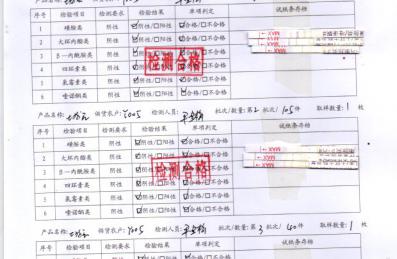 序号 检验项目 检测要求 检验结果 单项判定 试纸条存档
1 磺胺类 阴性 ☑阴性/□阳性 ☑合格/□不合格
2 大环内酯类 阴性 ☑阴性/□阳性 ☑合格/□不合格
3 β—内酰胺类 阴性 ☑阴性/□阳性 ☑合格/□不合格
4 四环素类 阴性 ☑阴性/□阳性 ☑合格/□不合格
5 氯霉素类 阴性 ☑阴性/□阳性 ☑合格/□不合格
6 喹诺酮类 阴性 ☑阴性/□阳性 ☑合格/□不合格
检测合格
MAX
产品名称: 供货农户: Y005 检测人员: 批次/数量: 第2批次/105件 取样数量: 1枚
序号 检验项目 检测要求 检验结果 单项判定 试纸条存档
1 磺胺类 阴性 ☑阴性/□阳性 ☑合格/□不合格
2 大环内酯类 阴性 ☑阴性/□阳性 ☑合格/□不合格
3 β—内酰胺类 阴性 ☑阴性/□阳性 ☑合格/□不合格
4 四环素类 阴性 ☑阴性/□阳性 ☑合格/□不合格
5 氯霉素类 阴性 ☑阴性/□阳性 ☑合格/□不合格
6 喹诺酮类 阴性 ☑阴性/□阳性 ☑合格/□不合格
检测合格
MAX
产品名称: 供货农户: Y005 检测人员: 批次/数量: 第3批次/ 件 取样数量: 1枚
序号 检验项目 检测要求 检验结果 单项判定 试纸条存档